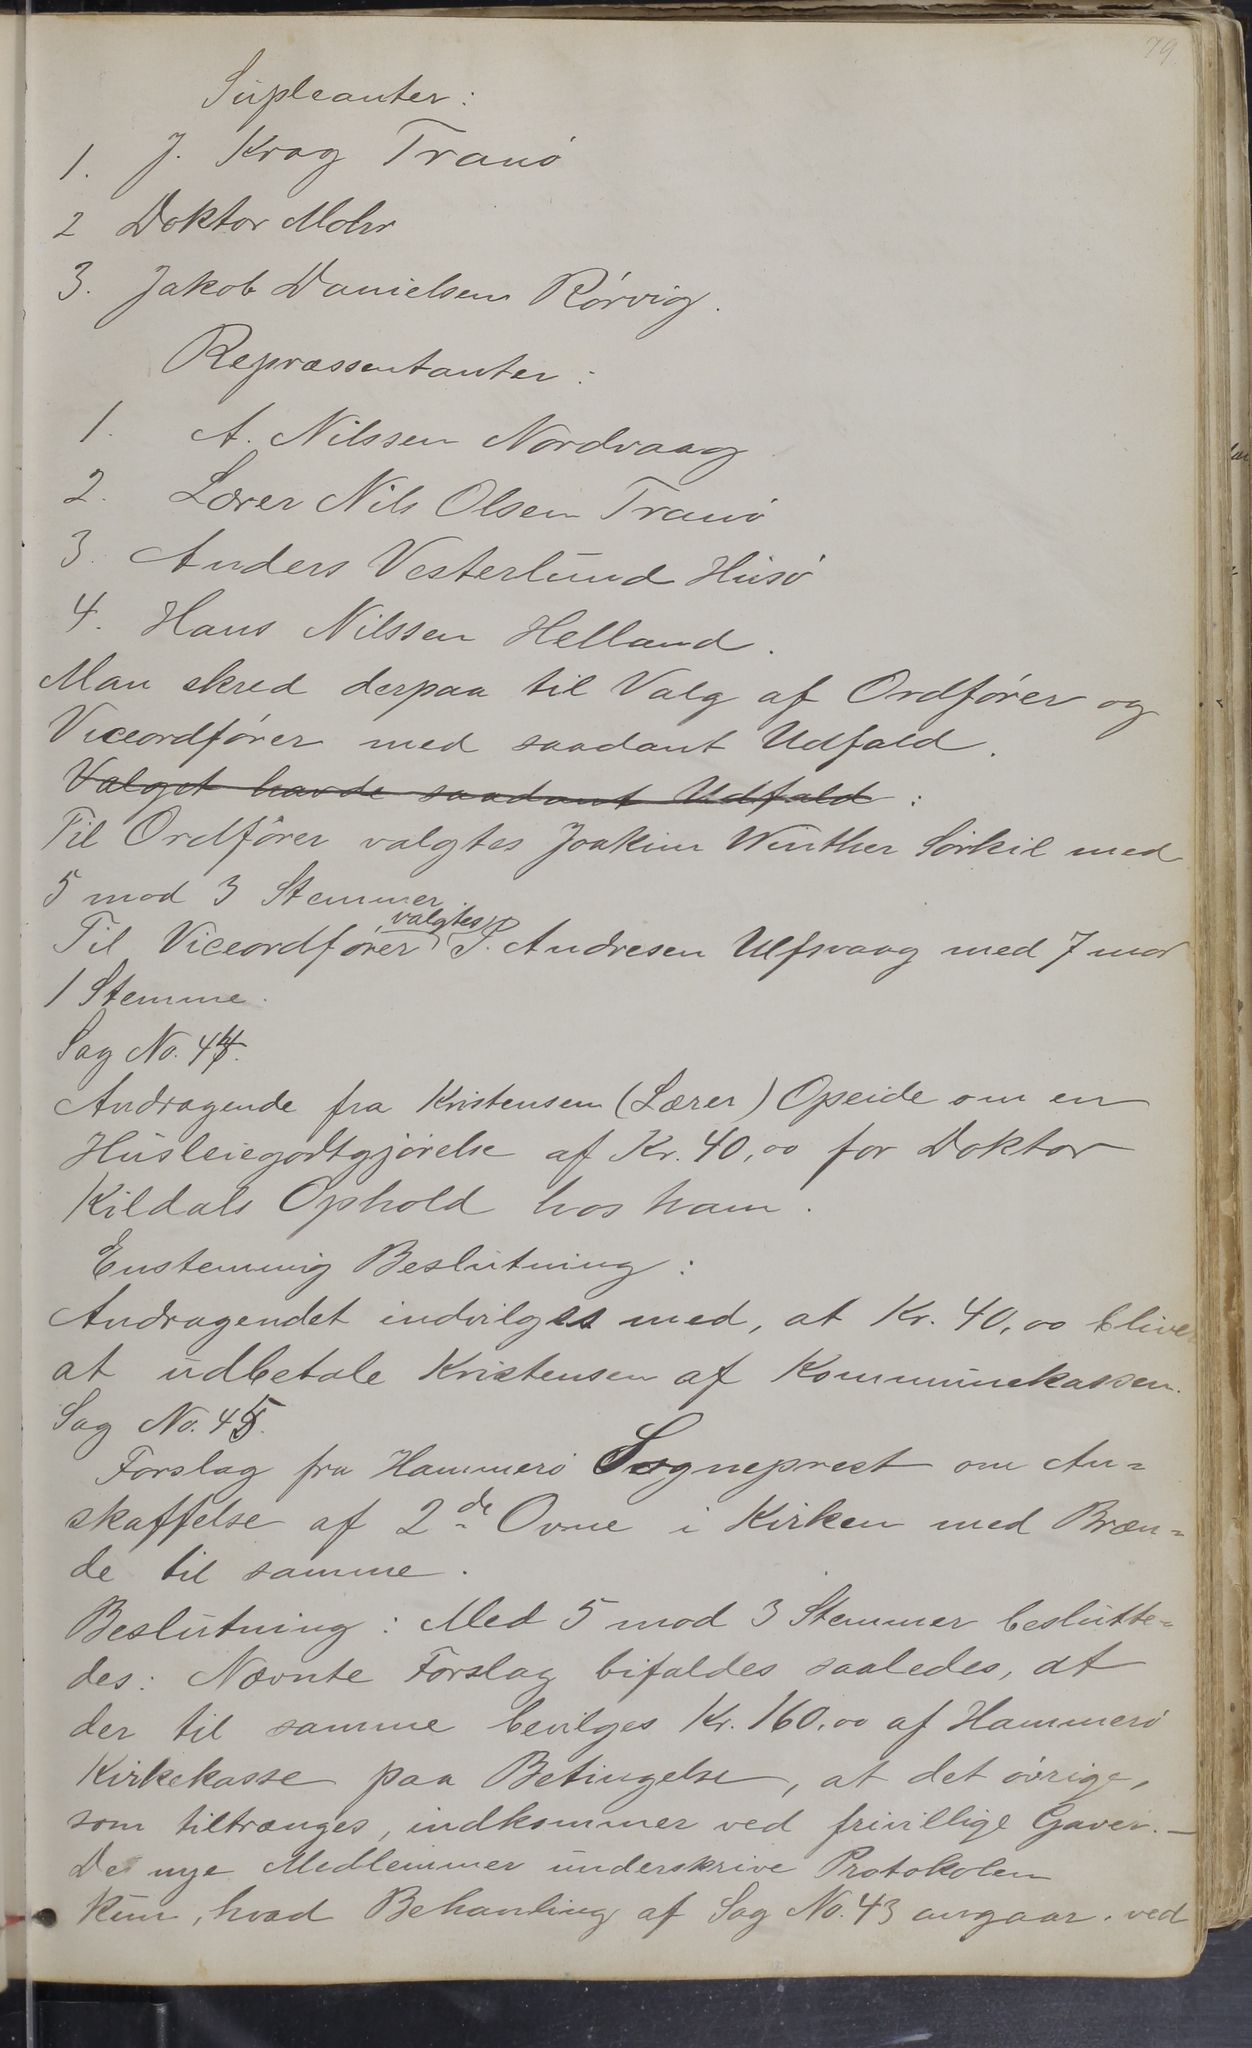 79
Supleanter:
1. J. Krog Tranö
2 Doktor Mohr
3. Jakob Danielsen Rörvig.
Repræssentanter:
1. A. Nilssen Nordvaag
2. Lærer Nils Olsen Tranö
3. Anders Vesterlund Husö
4. Hans Nilssen Helland.
Man skred derpaa til Valg af Ordförer og
Viceordförer med saadant Udfald.
Valget havde saadant Udfald:
Til Ordförer valgtes Joakim Winther Sörkil med
5 mod 3 Stemmer.
Til Viceordförer valgtes P. Andresen Ulfsvaag med 7 mod
1 Stemme.
Sag No. 44.
Andragende fra Kristensen (Lærer) Opeide om en
Husleiegodtgjörelse af Kr. 40,00 for Doktor
Kildals Ophold hos ham.
Enstemmig Beslutning:
Andragendet indvilges med, at Kr. 40,00 bliver
at udbetale Kristensen af Kommunekassen.
Sag No. 45.
Forslag fra Hammerö Sogneprest om An=
skaffelse af 2de Ovne i Kirken med Bræn=
de til samme.
Beslutning: Med 5 mod 3 Stemmer beslutte=
des: Nævnte Forslag bifaldes saaledes, at
der til samme bevilges Kr. 160,00 af Hammerö
Kirkekasse paa Betingelse, at det övrige,
som tiltrænges, indkommer ved frivillige Gaver. —
De nye Medlemmer underskrive Protokolen
kun, hvad Behanling af Sag No. 43 angaar. ved